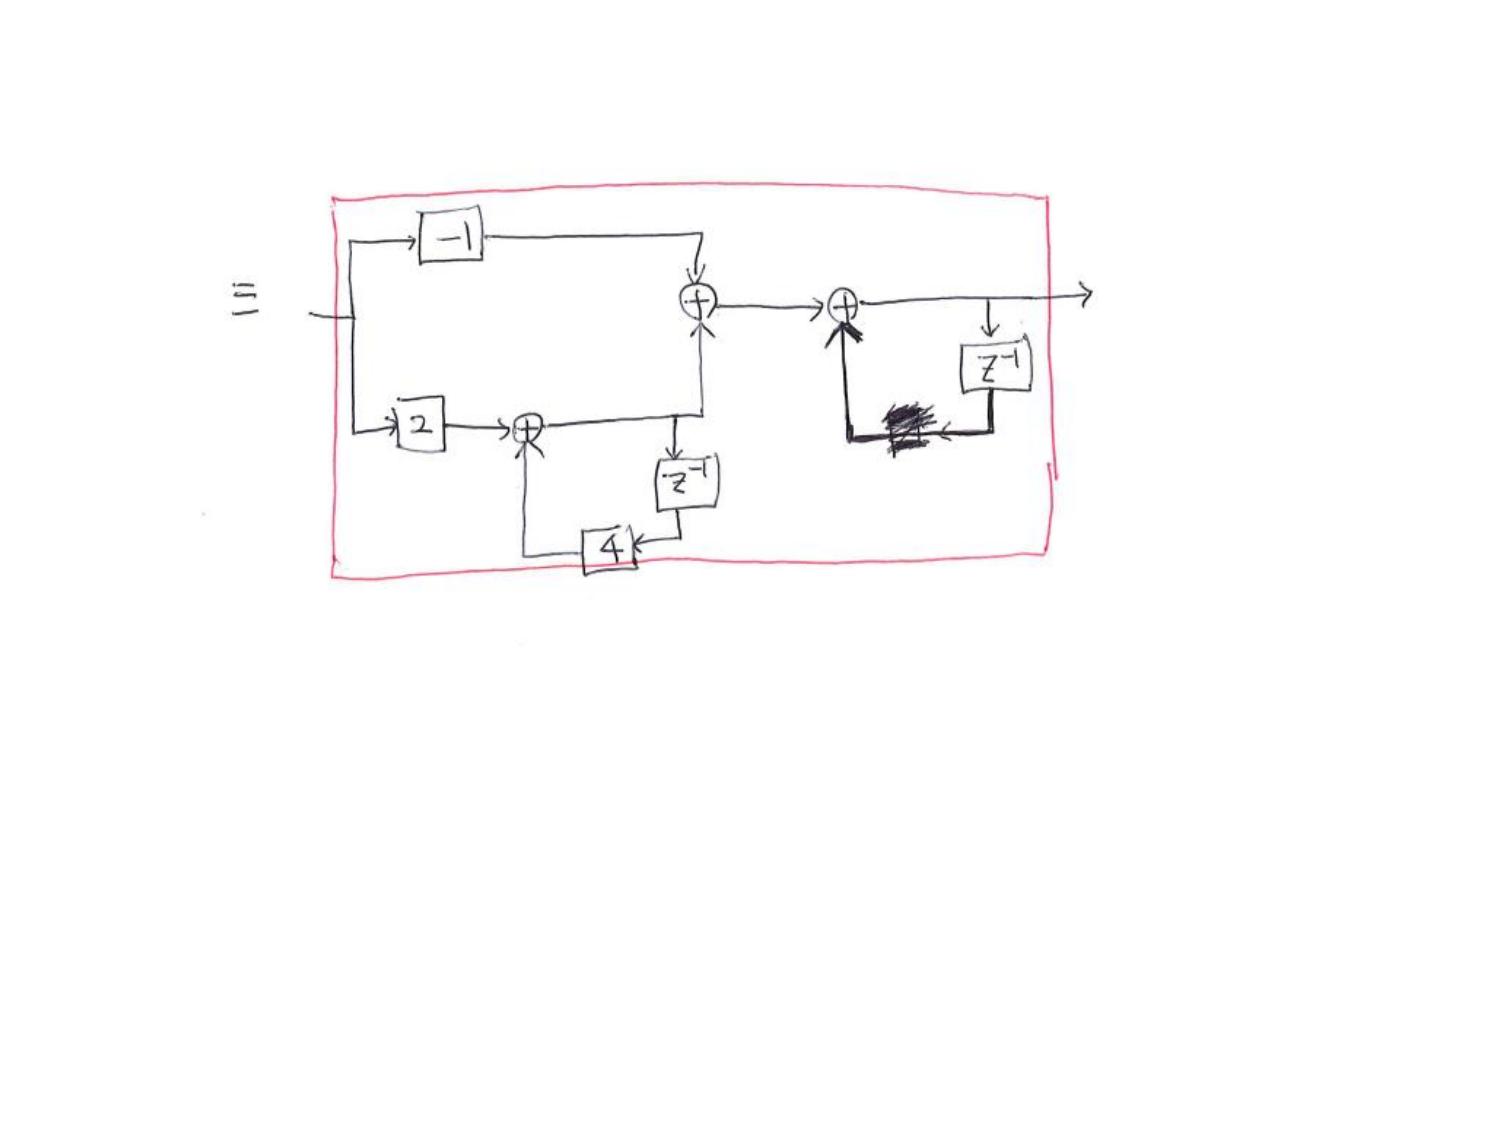 ≡
-1
+
+
z⁻¹
2
+
z⁻¹
4